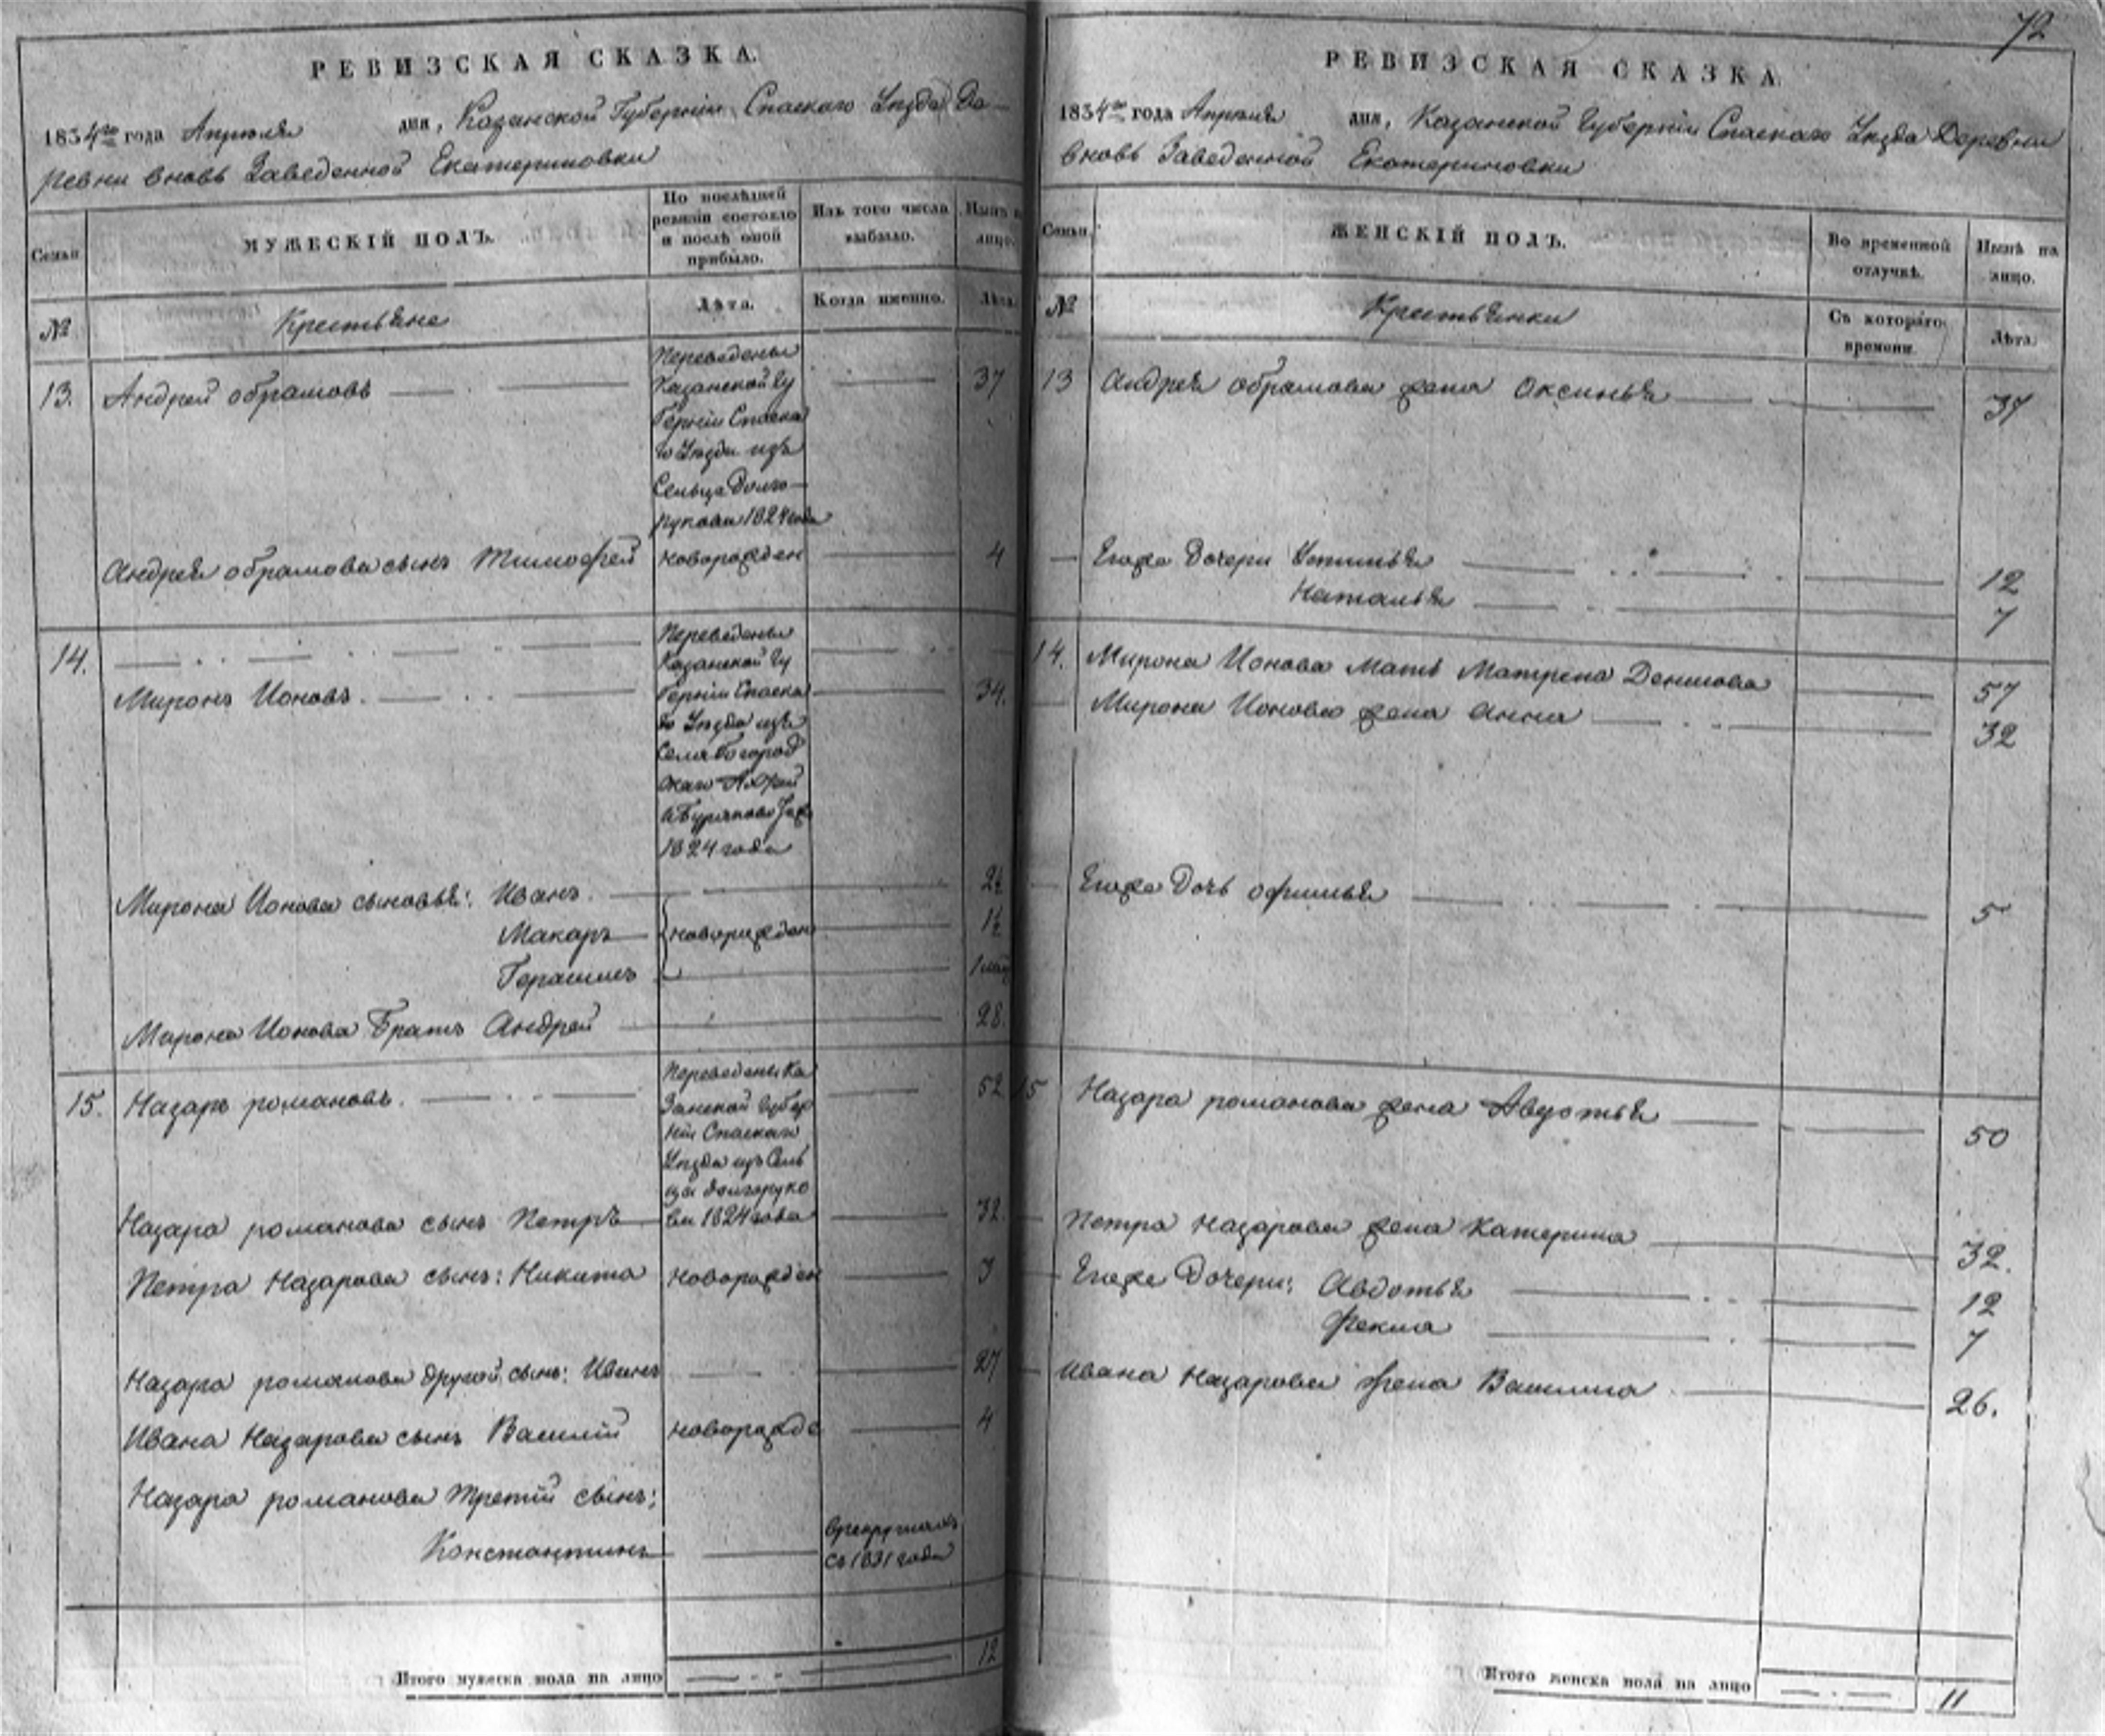 РЕВИЗСКАЯ СКАЗКА.
1834го года Апреля дня, Казанской Губернiи Спаскаго Уѣзда Де-
ревни вновь Заведенной Екатериновки
Семьи
МУЖЕСКІЙ ПОЛЪ.
По послѣдней ревизіи состояло и послѣ оной прибыло.
Изъ того числа выбыло.
Нынѣ на лицо.
№
Крестьяне
Лѣта.
Когда именно.
Лѣта.
13. Андрей обрамовъ 37
Переведены
Казанской Гу
бернiи Спаска
го Уѣзда изъ
Сельца Долго-
рукова 1824 года
Андрея обрамова сынъ Тимофей новорожден 4
14.
Переведены
Казанской Гу
Миронъ Ионовъ. бернiи Спаска 34.
го Уѣзда изъ
Села Богород
скаго
1824 года
Мирона Ионова сыновья: Иванъ.
Макаръ новорожден 1½
Герасимъ
Мирона Ионова Братъ Андрей 28.
15. Назаръ романовъ. 52
Переведены Ка
занской Губер
нiи Спаскаго
Уѣзда изъ Сель
ца долгоруко
Назара романова сынъ Петръ ва 1824 года 32.
Петра Назарова сынъ: Никита новорожден 3
Назара романова другой сынъ: Иванъ 27
Ивана Назарова сынъ Василiй новорожде 4
Назара романова третiй сынъ;
Константинъ
в рекрутахъ
съ 1831 года
Итого мужеска пола на лицо 12
72
РЕВИЗСКАЯ СКАЗКА.
1834го года Апреля дня, Казанской Губернiи Спаскаго Уѣзда Деревни
вновь Заведенной Екатериновки
Семьи.
ЖЕНСКІЙ ПОЛЪ.
Во временной отлучкѣ.
Нынѣ на лицо.
№
Крестьянки
Съ котораго времени.
Лѣта.
13 Андрея обрамова жена Оксинья 37
Егоже Дочери Устинья 12
Наталья 7
14. Мирона Ионова Мать Матрена Денисова 57
Мирона Ионова жена Анна 32
Егоже Дочь офимья 5
15 Назара романова жена Авдотья 50
Петра Назарова жена Катерина 32.
Егоже Дочери: Авдотья 12
Фекла 7
Ивана Назарова жена Василиса 26.
Итого женска пола на лицо 11